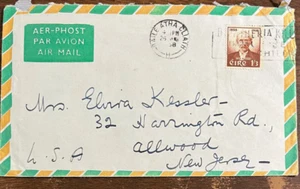 AER-PHOST
PAR AVION
AIR MAIL
BAILE ÁTHA CLIATH
1/3
Mrs. Elvira Kessler-
32 Harrington Rd.,
Allwood
New Jersey-
U.S.A